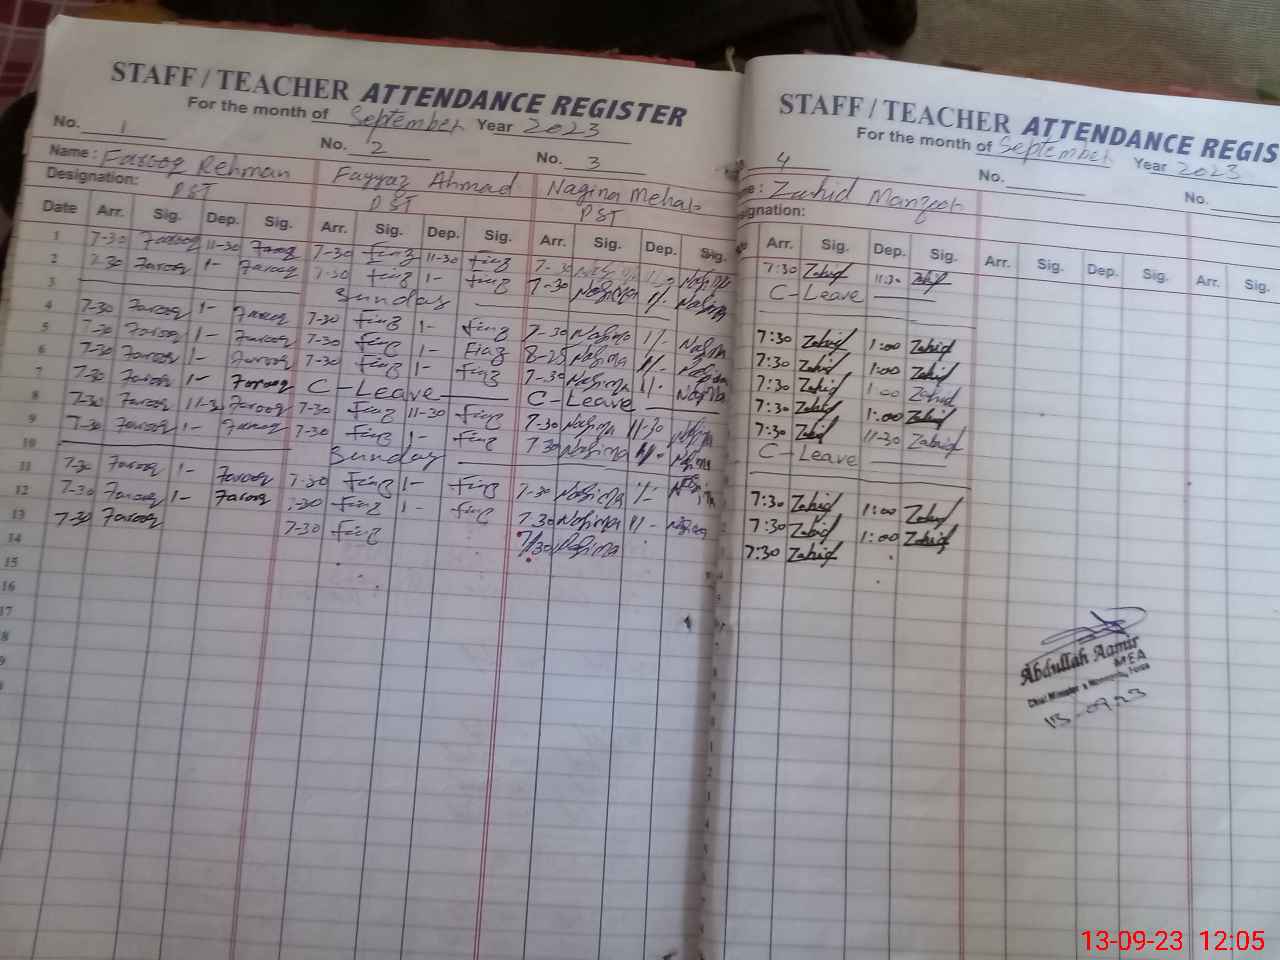 STAFF / TEACHER ATTENDANCE REGISTER
For the month of September Year 2023
No. 1 No. 2 No. 3
Name: Farooq Rehman Fayyaz Ahmad Nagina Mehal
Designation: PST PST PST
Date Arr. Sig. Dep. Sig. Arr. Sig. Dep. Sig. Arr. Sig. Dep. Sig.
1 7-30 Farooq 11-30 Farooq 7-30 Fiaz 11-30 Fiaz 7-30
2 7-30 Farooq 1- Farooq 7-30 Fiaz 1- Fiaz 7-30 Nagina 1/- Nagina
3 Sunday
4 7-30 Farooq 1- Farooq 7-30 Fiaz 1- Fiaz 7-30 Nagina 1/- Nagina
5 7-30 Farooq 1- Farooq 7-30 Fiaz 1- Fiaz 8-25 Nagina 1/- Nagina
6 7-30 Farooq 1- Farooq 7-30 Fiaz 1- Fiaz 7-30 Nagina 1/- Nagina
7 7-30 Farooq 1- Farooq C-Leave C-Leave
8 7-30 Farooq 11-30 Farooq 7-30 Fiaz 11-30 Fiaz 7-30 Nagina 11-30 Nagina
9 7-30 Farooq 1- Farooq 7-30 Fiaz 1- Fiaz 7-30 Nagina 1/- Nagina
10 Sunday
11 7-30 Farooq 1- Farooq 7-30 Fiaz 1- Fiaz 7-30 Nagina 1/- Nagina
12 7-30 Farooq 1- Farooq 7-30 Fiaz 1- Fiaz 7-30 Nagina 1/- Nagina
13 7-30 Farooq 7-30 Fiaz 7/30 Nagina
14
15
16
17
8
9
STAFF / TEACHER ATTENDANCE REGIS
For the month of September Year 2023
4 No. No.
e: Zahid Manzoor
signation:
Arr. Sig. Dep. Sig. Arr. Sig. Dep. Sig. Arr. Sig.
7:30 Zahid 11:30 Zahid
C-Leave
7:30 Zahid 1:00 Zahid
7:30 Zahid 1:00 Zahid
7:30 Zahid 1:00 Zahid
7:30 Zahid 1:00 Zahid
7:30 Zahid 11-30 Zahid
C-Leave
7:30 Zahid 1:00 Zahid
7:30 Zahid 1:00 Zahid
7:30 Zahid
Abdullah Aamir
MEA
13-09-23
13-09-23 12:05